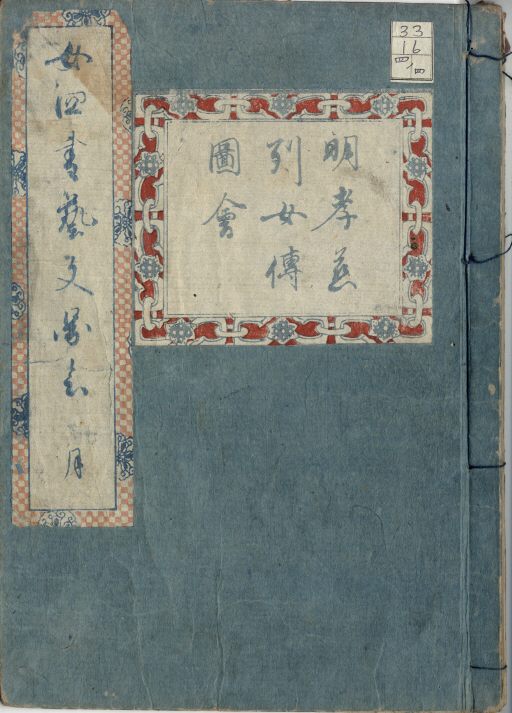 33
16
四ノ四
明孝慈
列女傳
圖會
女四書藝文圖會 月